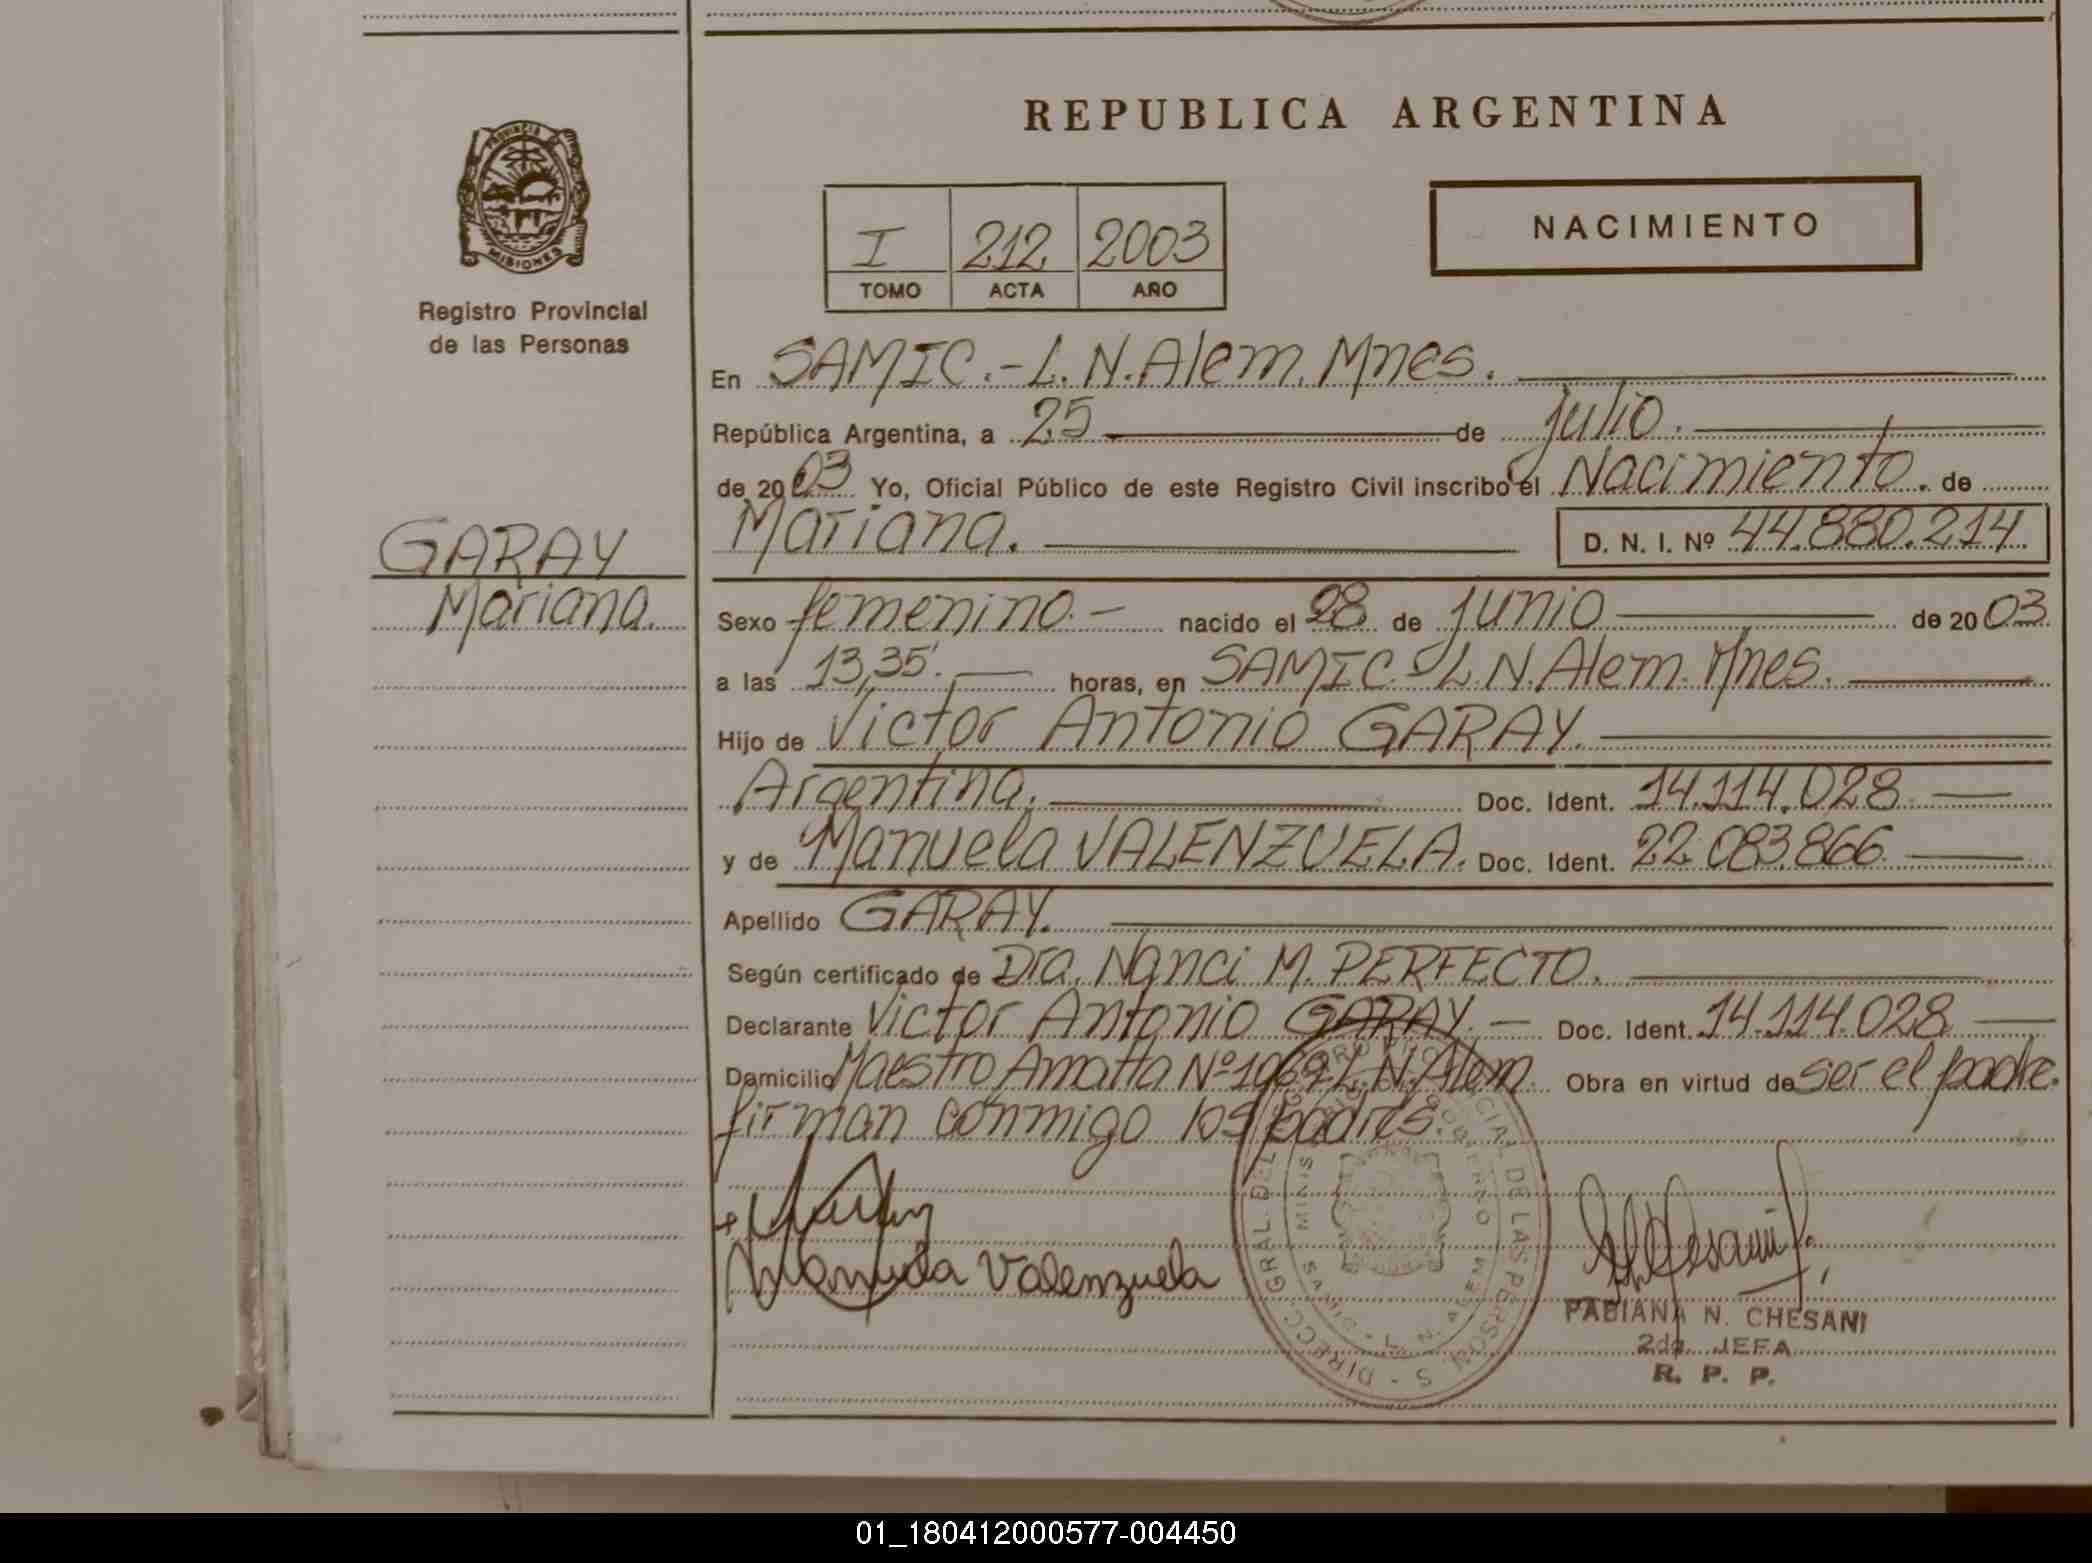 REPUBLICA ARGENTINA
PROVINCIA DE
MISIONES
Registro Provincial
de las Personas
I 212 2003
TOMO ACTA AÑO
NACIMIENTO
En SAMIC.-L. N. Alem. Mnes.
República Argentina, a 25 de julio.
de 2003 Yo, Oficial Público de este Registro Civil inscribo el Nacimiento. de
Mariana. D. N. I. Nº 44.880.214.
GARAY
Mariana.
Sexo femenino.- nacido el 28 de junio de 2003
a las 13,35'. horas, en SAMIC.-L.N. Alem. Mnes.
Hijo de Victor Antonio GARAY.
Argentina. Doc. Ident. 14.114.028
y de Manuela VALENZUELA. Doc. Ident. 22.083.866
Apellido GARAY.
Según certificado de Dra. Nanci M. PERFECTO.
Declarante Victor Antonio GARAY. - Doc. Ident. 14.114.028
Domicilio Maestro Amatta Nº L. N. Alem. Obra en virtud de ser el padre.
firman conmigo los padres.
Manuela Valenzuela
DIRECC. GRAL. DEL REGISTRO PROVINCIAL DE LAS PERSONAS
GOBIERNO
L. N. ALEM
FABIANA N. CHESANI
2da. JEFA
R. P. P.
01_180412000577-004450